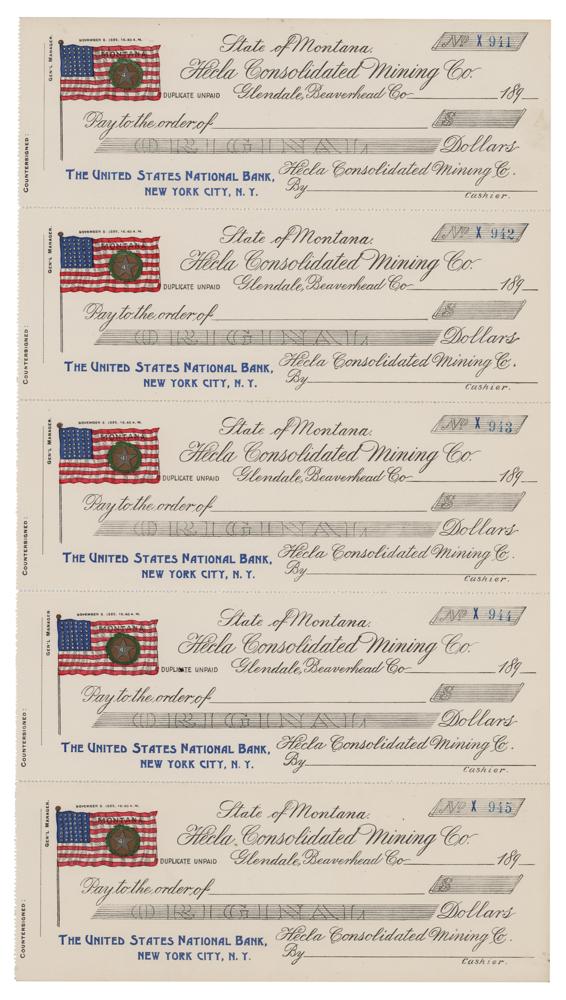 State of Montana.
No X 941
NOVEMBER 8, 1889, 10.40 A.M.
MONTANA
Hecla Consolidated Mining Co.
DUPLICATE UNPAID
Glendale, Beaverhead Co 189
Pay to the order of $
ORIGINAL Dollars
THE UNITED STATES NATIONAL BANK,
NEW YORK CITY, N. Y.
Hecla Consolidated Mining Co.
By
Cashier.
COUNTERSIGNED:
GEN'L MANAGER.
State of Montana.
No X 942
NOVEMBER 8, 1889, 10.40 A.M.
MONTANA
Hecla Consolidated Mining Co.
DUPLICATE UNPAID
Glendale, Beaverhead Co 189
Pay to the order of $
ORIGINAL Dollars
THE UNITED STATES NATIONAL BANK,
NEW YORK CITY, N. Y.
Hecla Consolidated Mining Co.
By
Cashier.
COUNTERSIGNED:
GEN'L MANAGER.
State of Montana.
No X 943
NOVEMBER 8, 1889, 10.40 A.M.
MONTANA
Hecla Consolidated Mining Co.
DUPLICATE UNPAID
Glendale, Beaverhead Co 189
Pay to the order of $
ORIGINAL Dollars
THE UNITED STATES NATIONAL BANK,
NEW YORK CITY, N. Y.
Hecla Consolidated Mining Co.
By
Cashier.
COUNTERSIGNED:
GEN'L MANAGER.
State of Montana.
No X 944
NOVEMBER 8, 1889, 10.40 A.M.
MONTANA
Hecla Consolidated Mining Co.
DUPLICATE UNPAID
Glendale, Beaverhead Co 189
Pay to the order of $
ORIGINAL Dollars
THE UNITED STATES NATIONAL BANK,
NEW YORK CITY, N. Y.
Hecla Consolidated Mining Co.
By
Cashier.
COUNTERSIGNED:
GEN'L MANAGER.
State of Montana.
No X 945
NOVEMBER 8, 1889, 10.40 A.M.
MONTANA
Hecla Consolidated Mining Co.
DUPLICATE UNPAID
Glendale, Beaverhead Co 189
Pay to the order of $
ORIGINAL Dollars
THE UNITED STATES NATIONAL BANK,
NEW YORK CITY, N. Y.
Hecla Consolidated Mining Co.
By
Cashier.
COUNTERSIGNED:
GEN'L MANAGER.